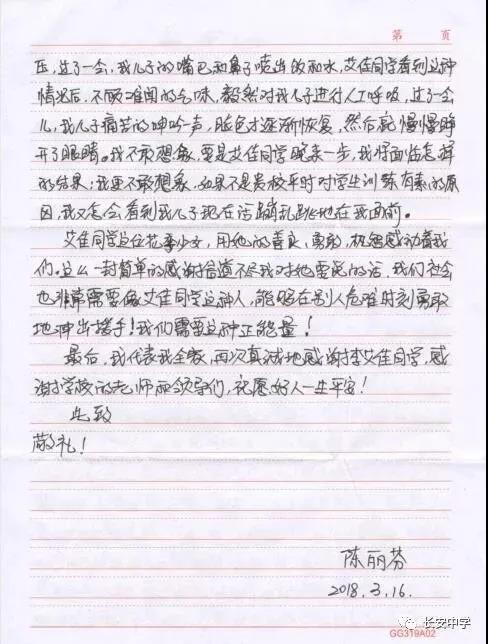 第 页
压，过了一会，我儿子的嘴巴和鼻子喷出饭和水，艾佳同学看到这种
情况后，不顾难闻的气味，毅然对我儿子进行人工呼吸，过了一会
儿，我儿子痛苦的呻吟一声，脸色才逐渐恢复，然后就慢慢睁
开了眼睛。我不敢想象，要是艾佳同学晚来一步，我将面临怎样
的结果；我更不敢想象，如果不是贵校平时对学生训练有素的原
因，我又怎会看到我儿子现在活蹦乱跳地在我面前。
艾佳同学这位花季少女，用她的善良、勇敢、机智感动着我
们。这么一封简单的感谢信道不尽我对她要说的话，我们社会
也非常需要像艾佳同学这种人，能够在别人危难时刻勇敢
地冲出援手！我们需要这种正能量！
最后，我代表我全家，再次真诚地感谢李艾佳同学，感
谢学校的老师和领导们，祝愿好人一生平安！
此致
敬礼！
陈丽芬
2018.3.16.
长安中学
GG319A02